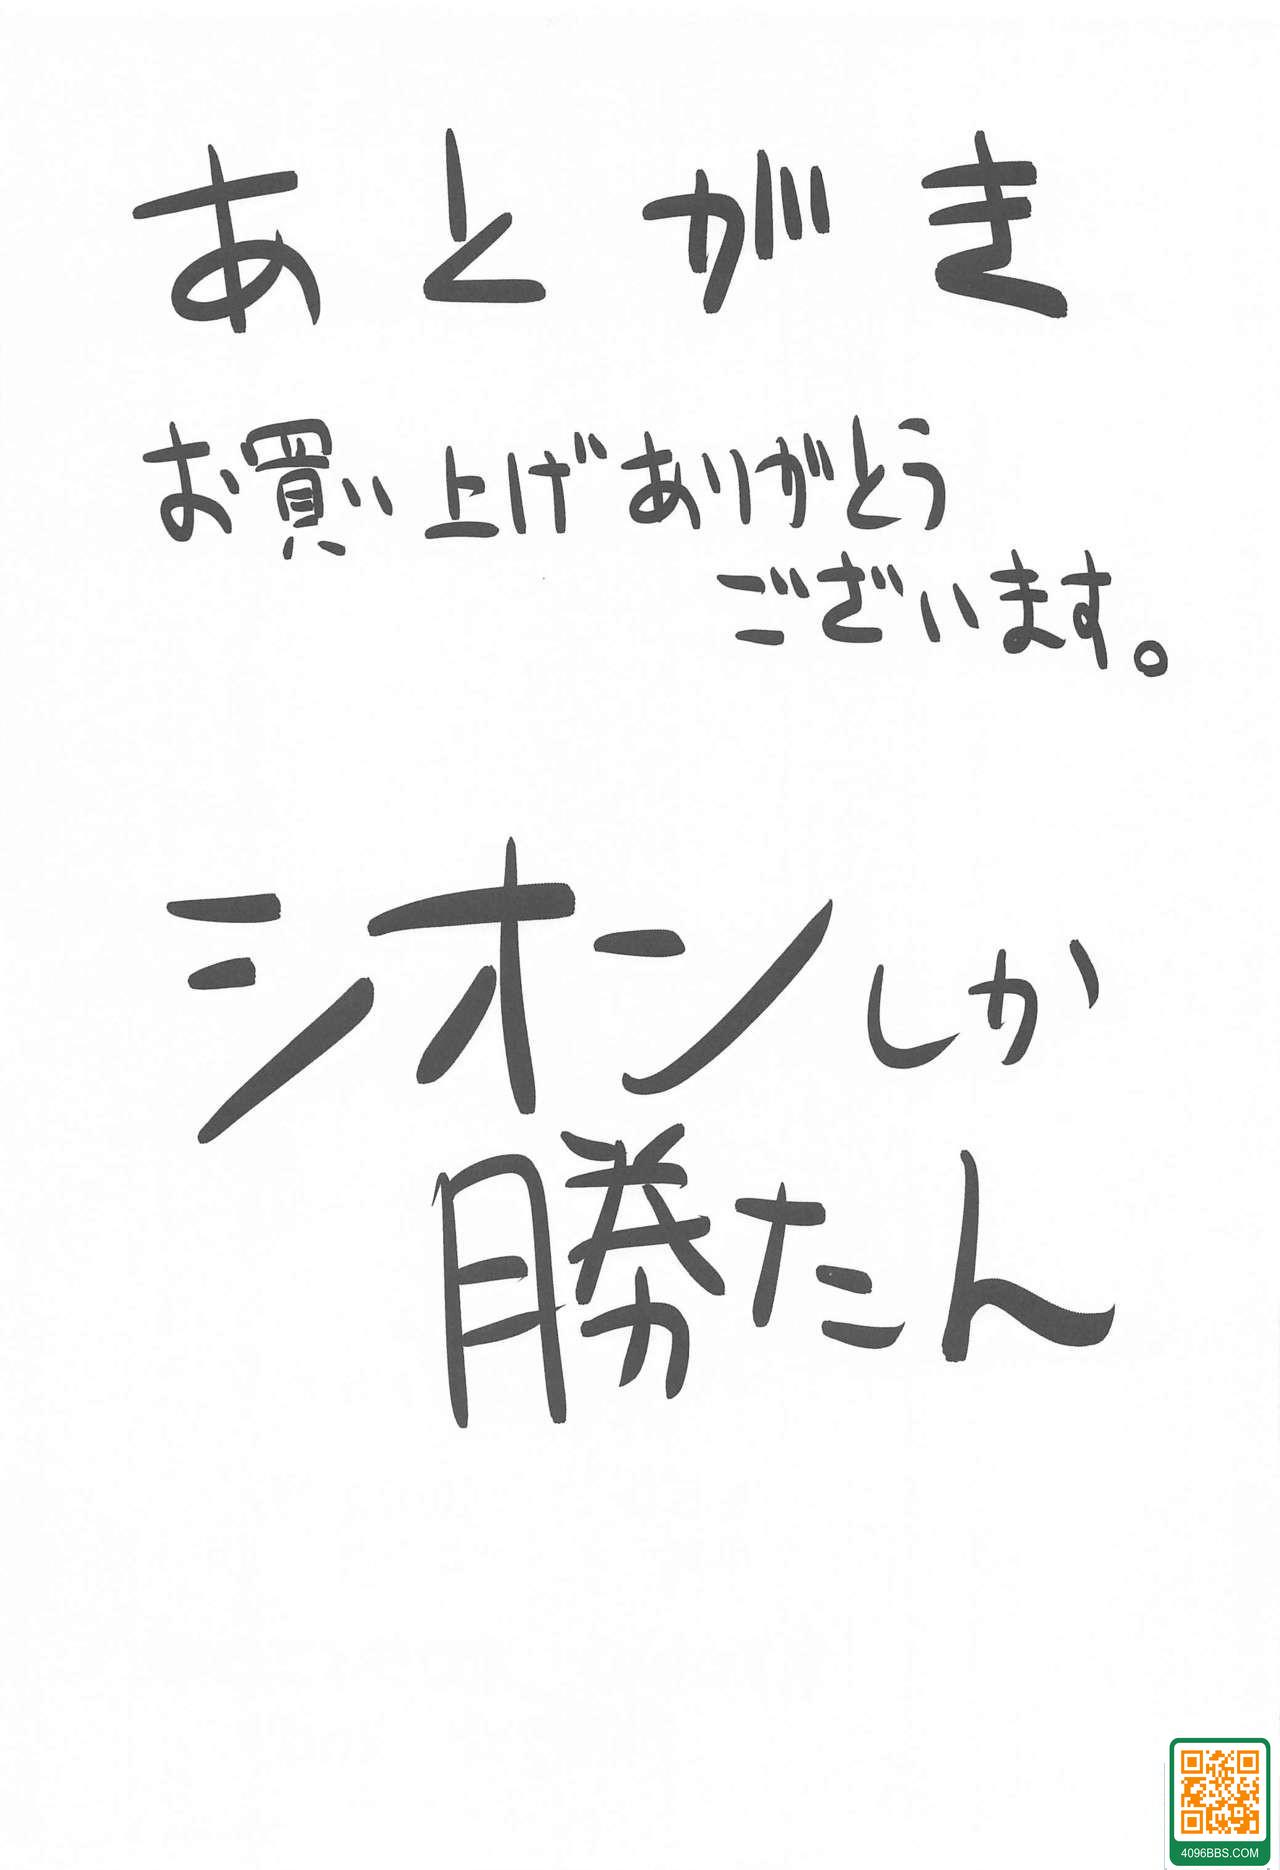 あとがき
お買い上げありがとう
ございます。
シオンしか
勝たん
4096BBS.COM